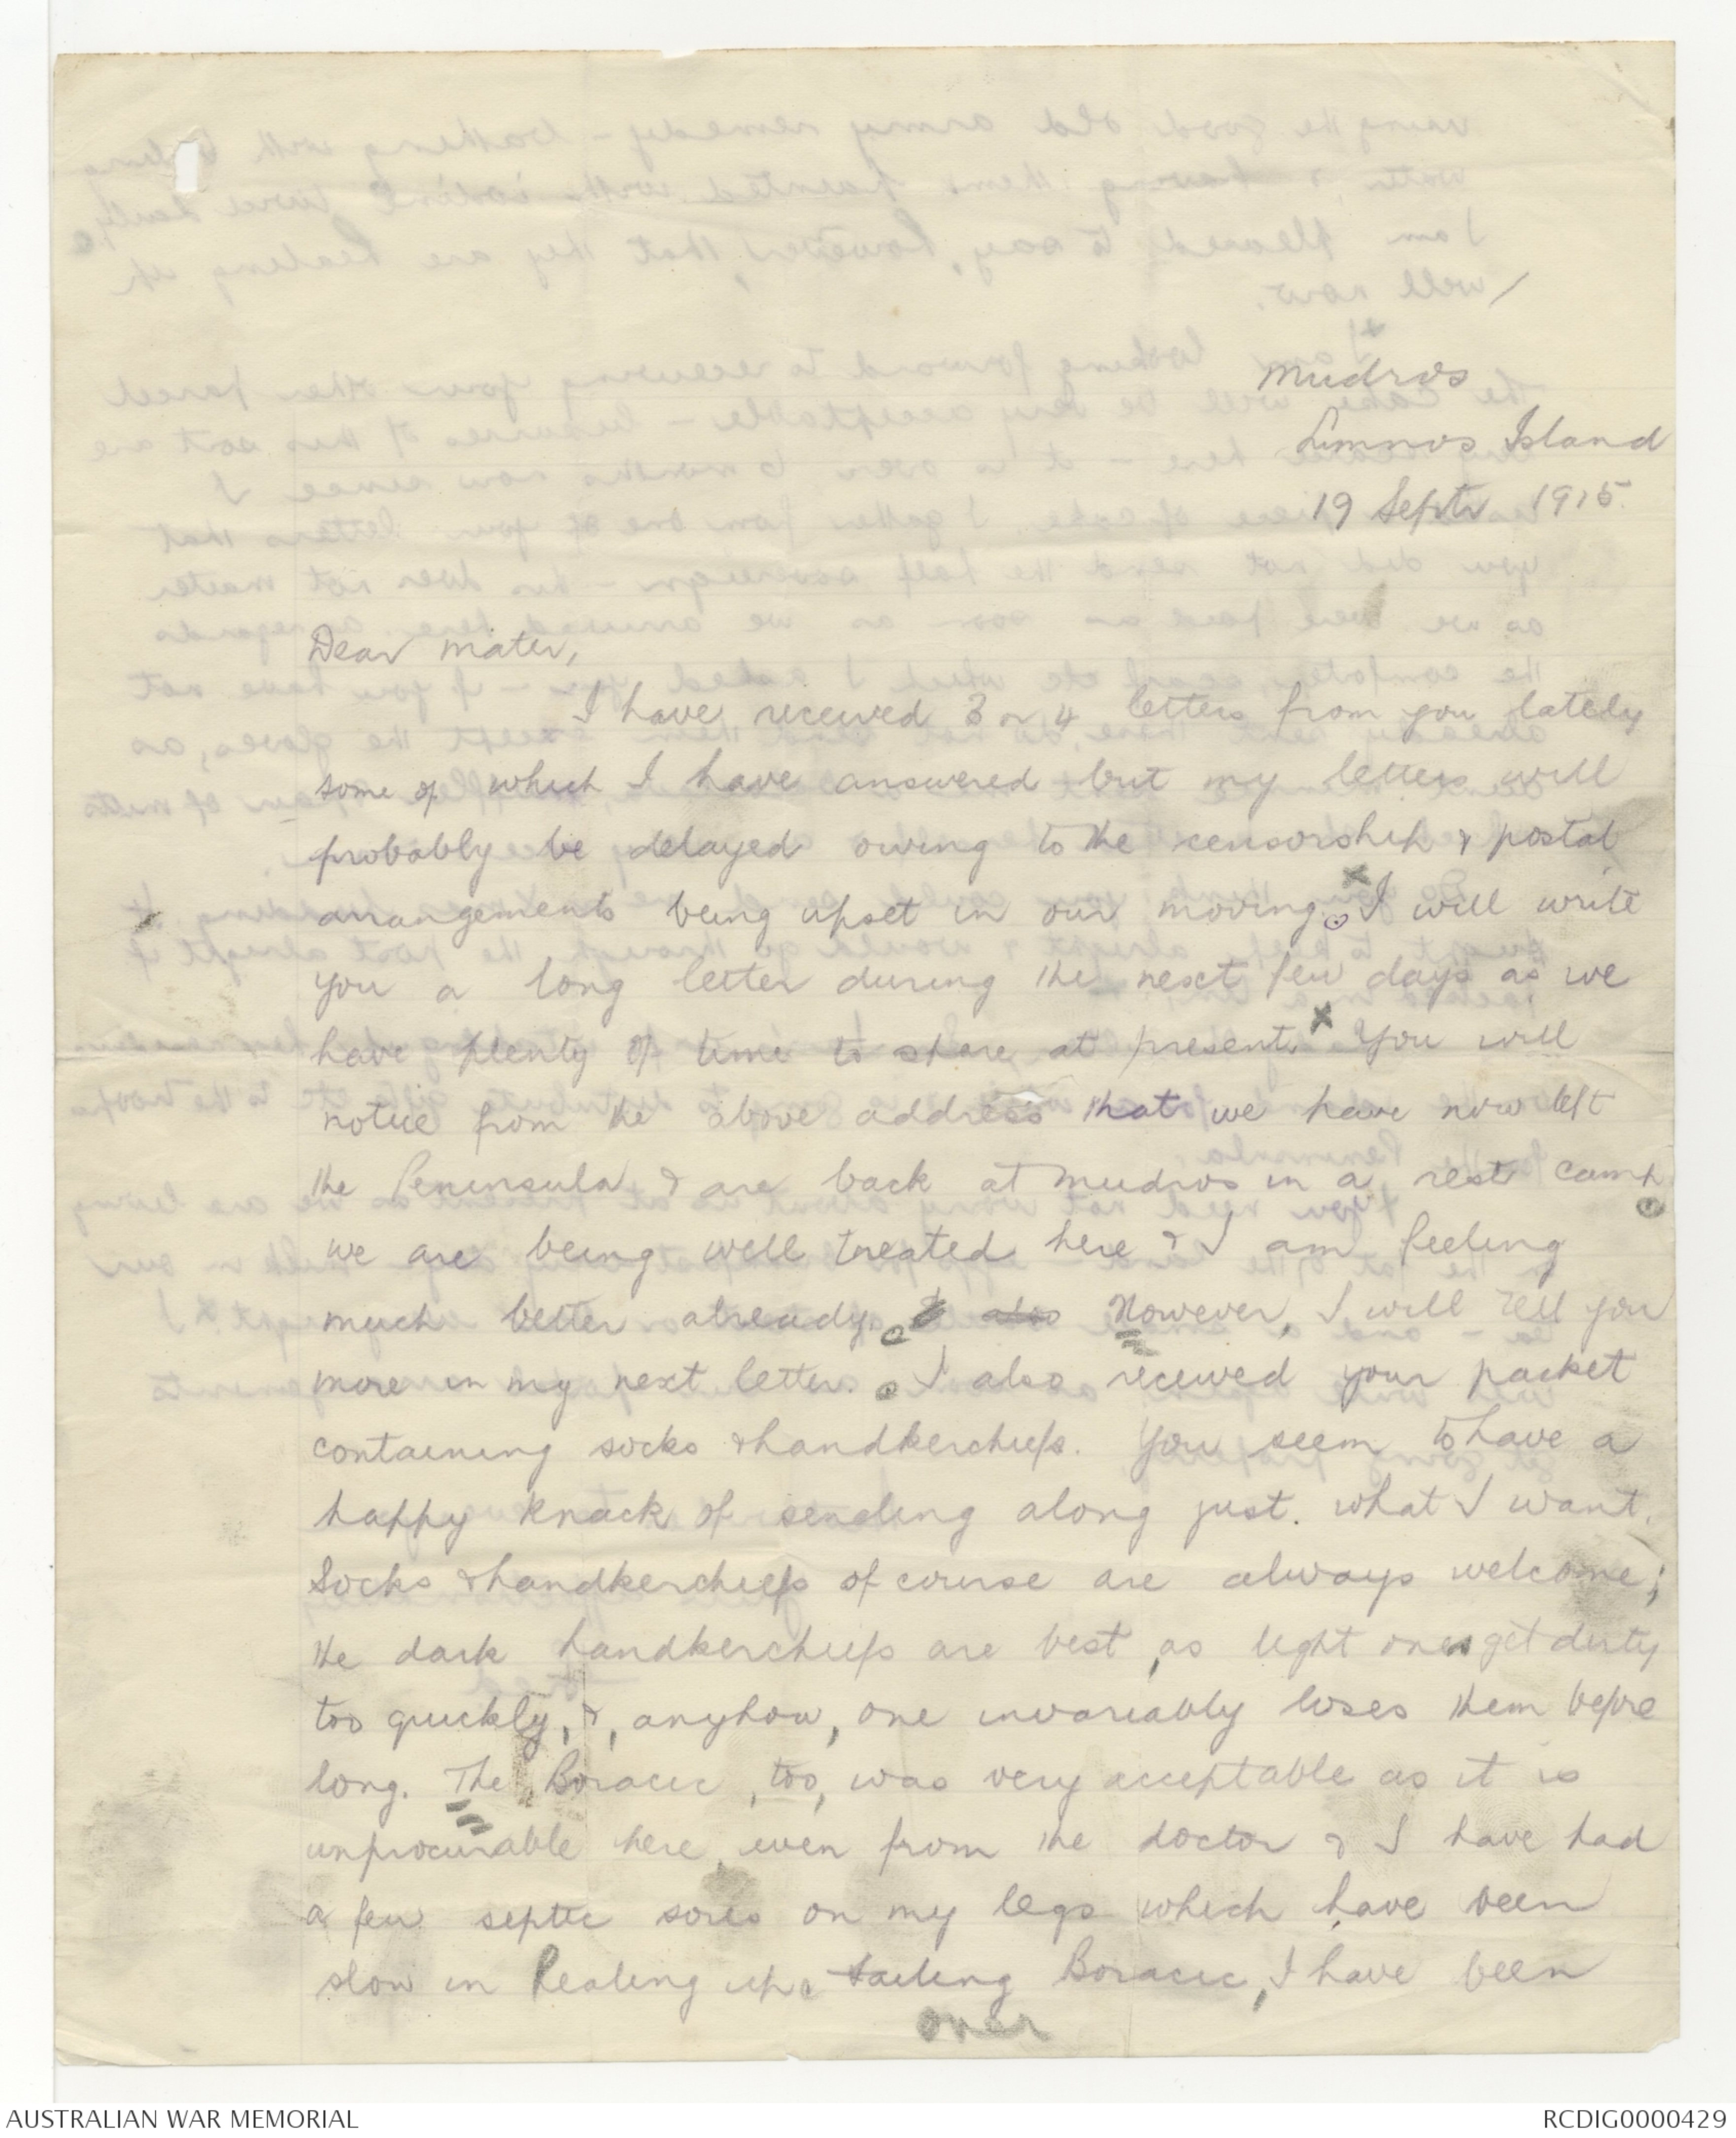 Mudros
Limnos Island
19 Septr 1915.
Dear Mater,
I have received 3 or 4 letters from you lately
some of which I have answered but my letters will
probably be delayed owing to the censorship & postal
arrangements being upset in our moving. I will write
you a long letter during the next few days as we
have plenty of time to spare at present. You will
notice from the above address that we have now left
the Peninsula & are back at Mudros in a rest camp.
we are being well treated here & I am feeling
much better already. & also However, I will tell you
more in my next letter. I also received your packet
containing socks & handkerchiefs. You seem to have a
happy knack of sending along just. what I want.
Socks & handkerchiefs of course are always welcome;
the dark handkerchiefs are best, as light ones get dirty
too quickly, &, anyhow, one invariably loses them before
long. The Boracic, too, was very acceptable as it is
unprocurable here, even from the doctor & I have had
a few septic sores on my legs which have been
slow in healing up. Failing Boracic, I have been
over
AUSTRALIAN WAR MEMORIAL
RCDIG0000429